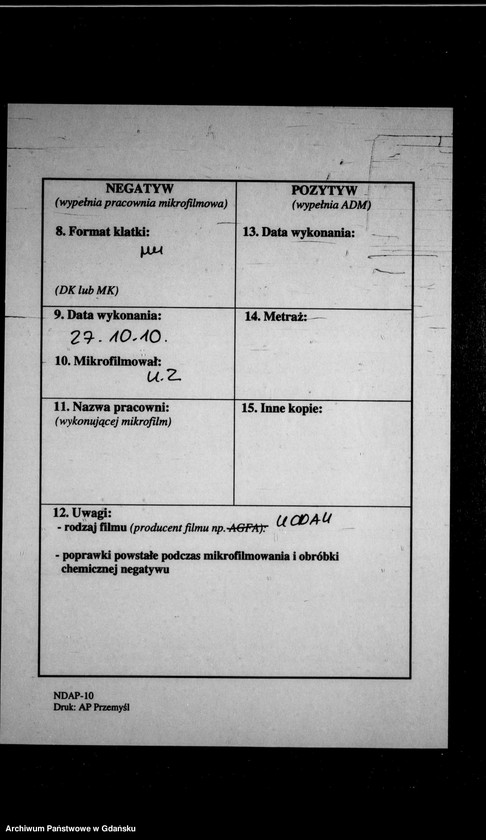 NEGATYW
(wypełnia pracownia mikrofilmowa)
8. Format klatki:
(DK lub MK)
9. Data wykonania:
27.10.10.
10. Mikrofilmował:
U.Z
11. Nazwa pracowni:
(wykonującej mikrofilm)
POZYTYW
(wypełnia ADM)
13. Data wykonania:
14. Metraż:
15. Inne kopie:
12. Uwagi:
- rodzaj filmu (producent filmu np. AGFA):
- poprawki powstałe podczas mikrofilmowania i obróbki
chemicznej negatywu
NDAP-10
Druk: AP Przemyśl
Archiwum Państwowe w Gdańsku